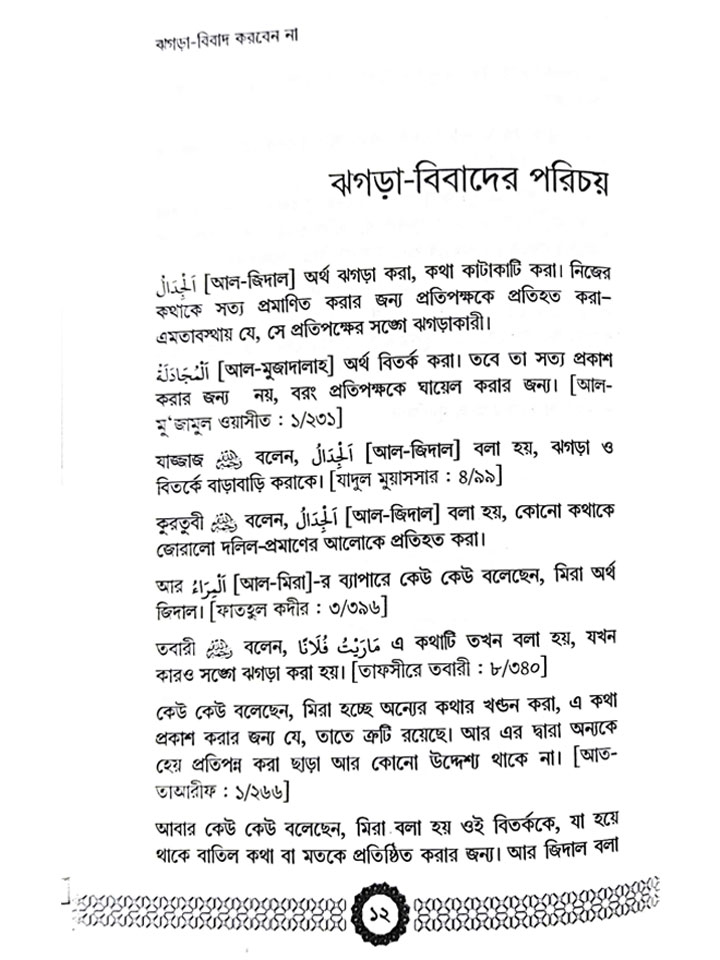 ঝগড়া-বিবাদ করবেন না
ঝগড়া-বিবাদের পরিচয়
اَلْجِدَالُ [আল-জিদাল] অর্থ ঝগড়া করা, কথা কাটাকাটি করা। নিজের
কথাকে সত্য প্রমাণিত করার জন্য প্রতিপক্ষকে প্রতিহত করা–
এমতাবস্থায় যে, সে প্রতিপক্ষের সঙ্গে ঝগড়াকারী।
اَلْمُجَادَلَةُ [আল-মুজাদালাহ] অর্থ বিতর্ক করা। তবে তা সত্য প্রকাশ
করার জন্য নয়, বরং প্রতিপক্ষকে ঘায়েল করার জন্য। [আল-
মু‘জামুল ওয়াসীত : ১/২৩১]
যাজ্জাজ ﷺ বলেন, اَلْجِدَالُ [আল-জিদাল] বলা হয়, ঝগড়া ও
বিতর্কে বাড়াবাড়ি করাকে। [যাদুল মুয়াসসার : ৪/৯৯]
কুরতুবী বলেন, اَلْجِدَالُ [আল-জিদাল] বলা হয়, কোনো কথাকে
জোরালো দলিল-প্রমাণের আলোকে প্রতিহত করা।
আর اَلْمِرَاءُ [আল-মিরা]-র ব্যাপারে কেউ কেউ বলেছেন, মিরা অর্থ
জিদাল। [ফাতহুল কদীর : ৩/৩৯৬]
তবারী বলেন, مَارَيْتُ فُلَانًا এ কথাটি তখন বলা হয়, যখন
কারও সঙ্গে ঝগড়া করা হয়। [তাফসীরে তবারী : ৮/৩৪০]
কেউ কেউ বলেছেন, মিরা হচ্ছে অন্যের কথার খণ্ডন করা, এ কথা
প্রকাশ করার জন্য যে, তাতে ত্রুটি রয়েছে। আর এর দ্বারা অন্যকে
হেয় প্রতিপন্ন করা ছাড়া আর কোনো উদ্দেশ্য থাকে না। [আত-
তাআরীফ : ১/২৬৬]
আবার কেউ কেউ বলেছেন, মিরা বলা হয় ওই বিতর্ককে, যা হয়ে
থাকে বাতিল কথা বা মতকে প্রতিষ্ঠিত করার জন্য। আর জিদাল বলা
১২